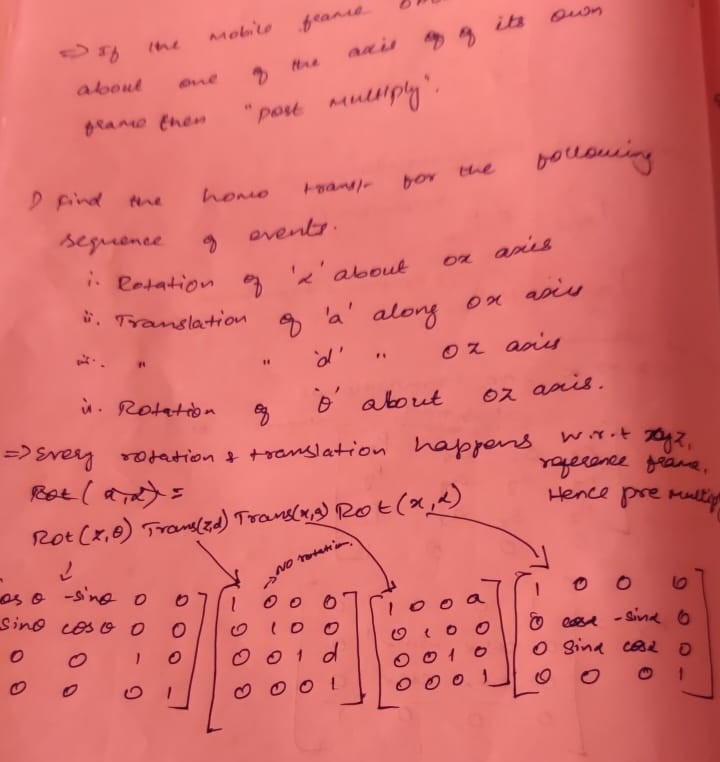 => If the mobile frame
about one of the axis of of its own
frame then "post multiply".
1) Find the homo trans/- for the following
sequence of events.
i. Rotation of 'α' about ox axis
ii. Translation of 'a' along ox axis
iii. " " 'd' " oz axis
iv. Rotation of 'θ' about oz axis.
=> Every rotation & translation happens w.r.t xyz,
reference frame,
Rot(x,α) = Hence pre multiply
Rot(z,θ) Trans(z,d) Trans(x,a) Rot(x,α)
-> No rotation.
cos θ -sinθ 0 0 1 0 0 0 1 0 0 a 1 0 0 0
sinθ cosθ 0 0 0 1 0 0 0 1 0 0 0 cosα -sinα 0
0 0 1 0 0 0 1 d 0 0 1 0 0 sinα cosα 0
0 0 0 1 0 0 0 1 0 0 0 1 0 0 0 1